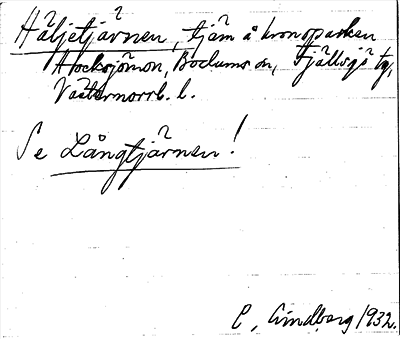 Håljetjärnen, tjärn å kronoparken
Stocksjömon, Bodums sn, Fjällsjö tg,
Västernorrl. l.
Se Långtjärnen!
C. Lindberg 1932.